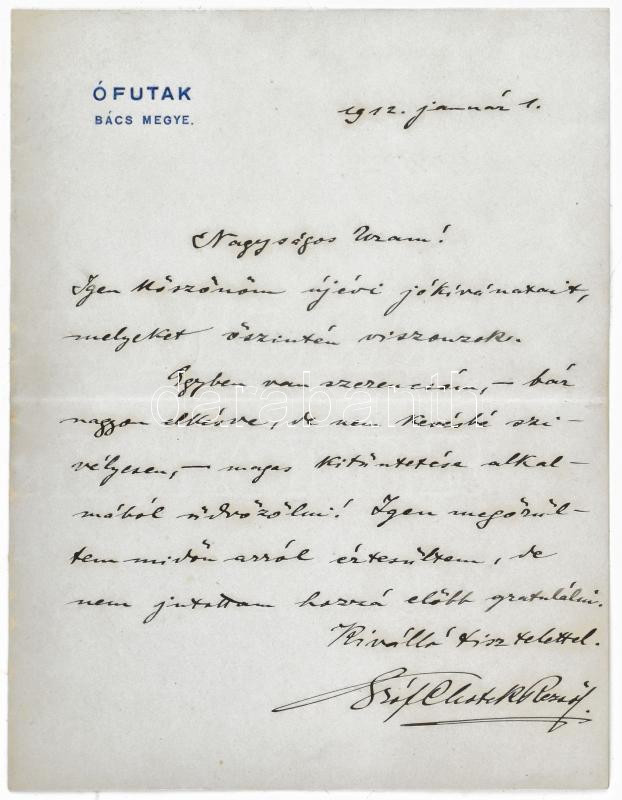 ÓFUTAK
BÁCS MEGYE.
1912. január 1.
Nagyságos Uram!
Igen köszönöm újévi jókívánatait,
melyeket őszintén viszonzok.
Egyben van szerencsém, – bár
nagyon elkésve, de nem kevésbé szi-
vélyesen, – magas kitüntetése alkal-
mából üdvözölni! Igen megörül-
tem midőn arról értesültem, de
nem jutottam hozzá előbb gratulálni.
Kiválló tisztelettel.
Gróf Chotek Rezső.
darabanth.com